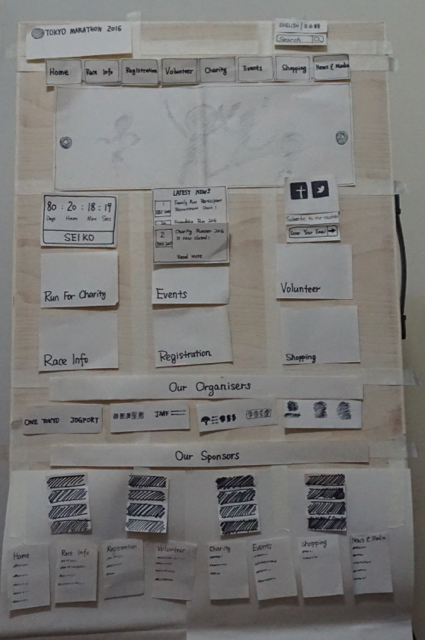 TOKYO MARATHON 2016
ENGLISH / 日本語
Search
Home Race Info Registration Volunteer Charity Events Shopping News & Media
80 : 20 : 18 : 19
Days Hours Mins Secs
SEIKO
LATEST NEWS
1 Family Run Participant
2 Charity Runner 2016
is now closed!
Read more
Subscribe to our
Enter Your Email
Run For Charity
Events
Volunteer
Race Info
Registration
Shopping
Our Organisers
ONE TOKYO JOGPORT
Our Sponsors
Home Race Info Registration Volunteer Charity Events Shopping News & Media